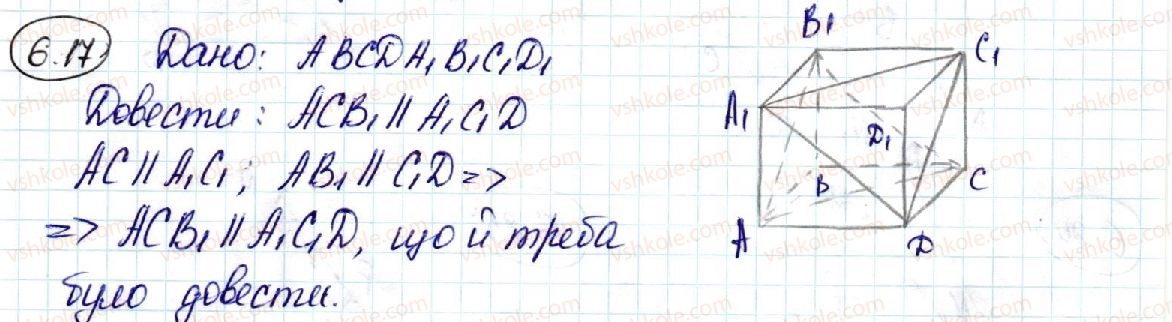 6.17 Дано: ABCDA₁B₁C₁D₁
Довести: ACB₁ || A₁C₁D
AC || A₁C₁; AB₁ || C₁D =>
=> ACB₁ || A₁C₁D, що й треба
було довести.
B₁
C₁
A₁
D₁
B
C
A
D
vshkole.com